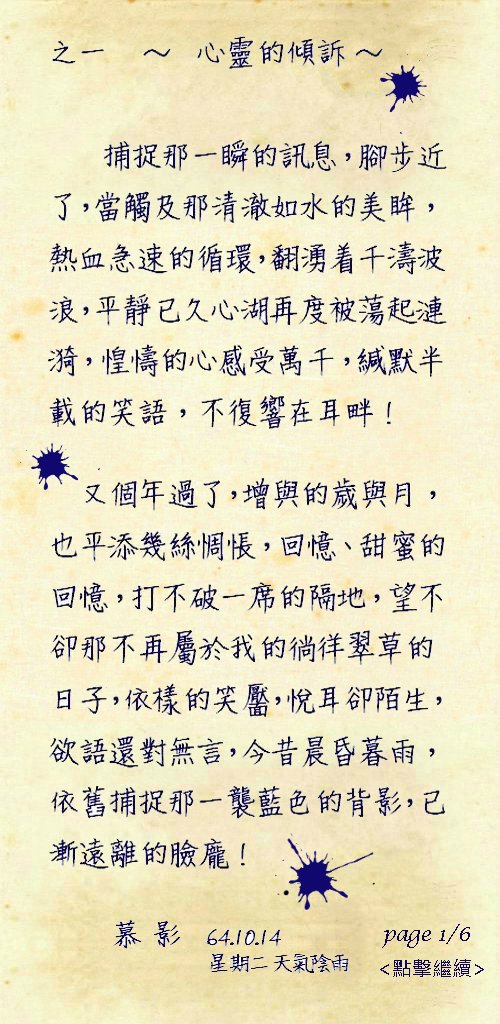 之一 ～ 心靈的傾訴～
捕捉那一瞬的訊息，腳步近
了，當觸及那清澈如水的美眸，
熱血急速的循環，翻湧着千濤波
浪，平靜已久心湖再度被蕩起漣
漪，惶懤的心感受萬千，緘默半
載的笑語，不復響在耳畔！
又個年過了，增與的歲與月，
也平添幾絲惆悵，回憶、甜蜜的
回憶，打不破一席的隔地，望不
卻那不再屬於我的徜徉翠草的
日子，依樣的笑靨，悅耳卻陌生，
欲語還對無言，今昔晨昏暮雨，
依舊捕捉那一襲藍色的背影，已
漸遠離的臉龐！
慕影 64.10.14 page 1/6
星期二 天氣陰雨 <點擊繼續>